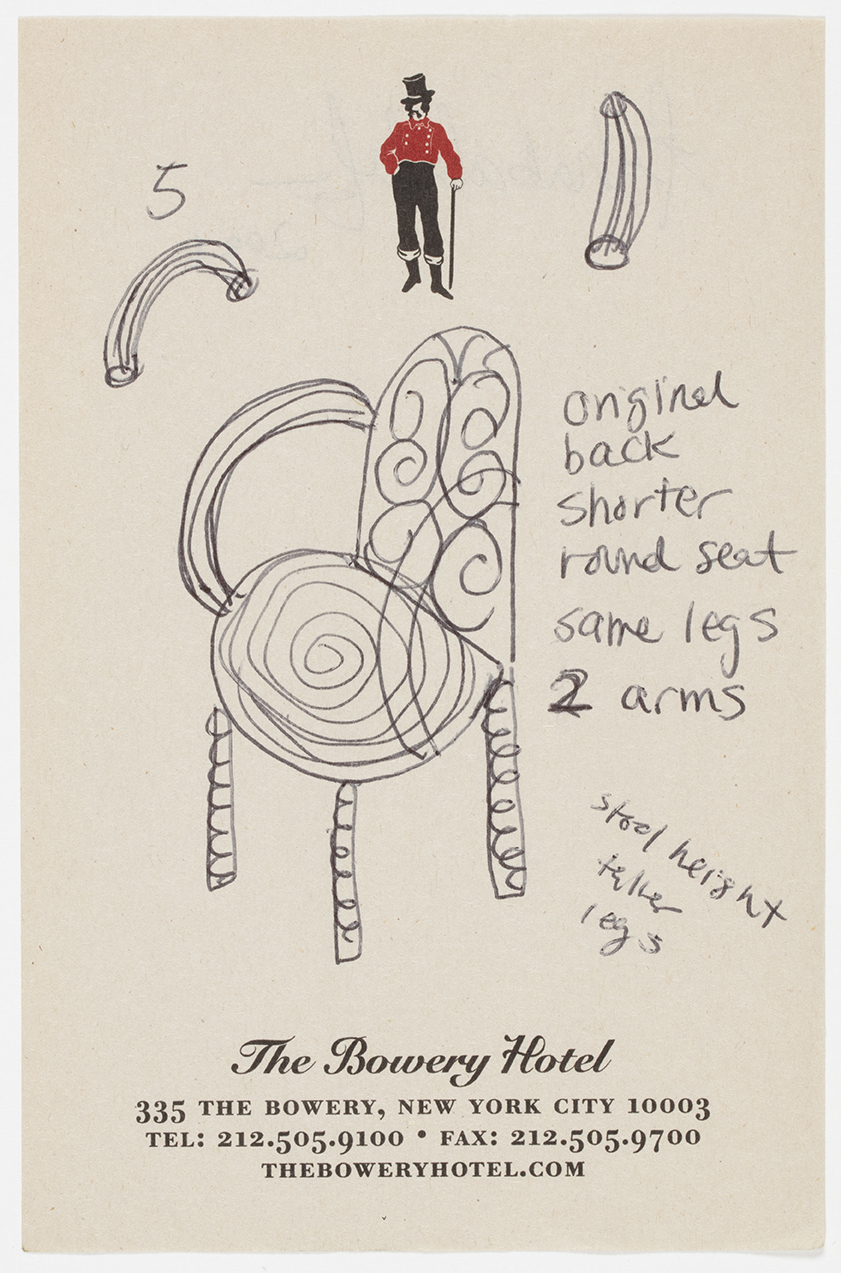 5
original
back
shorter
round seat
same legs
2 arms
stool height
taller
legs
The Bowery Hotel
335 THE BOWERY, NEW YORK CITY 10003
TEL: 212.505.9100 • FAX: 212.505.9700
THEBOWERYHOTEL.COM